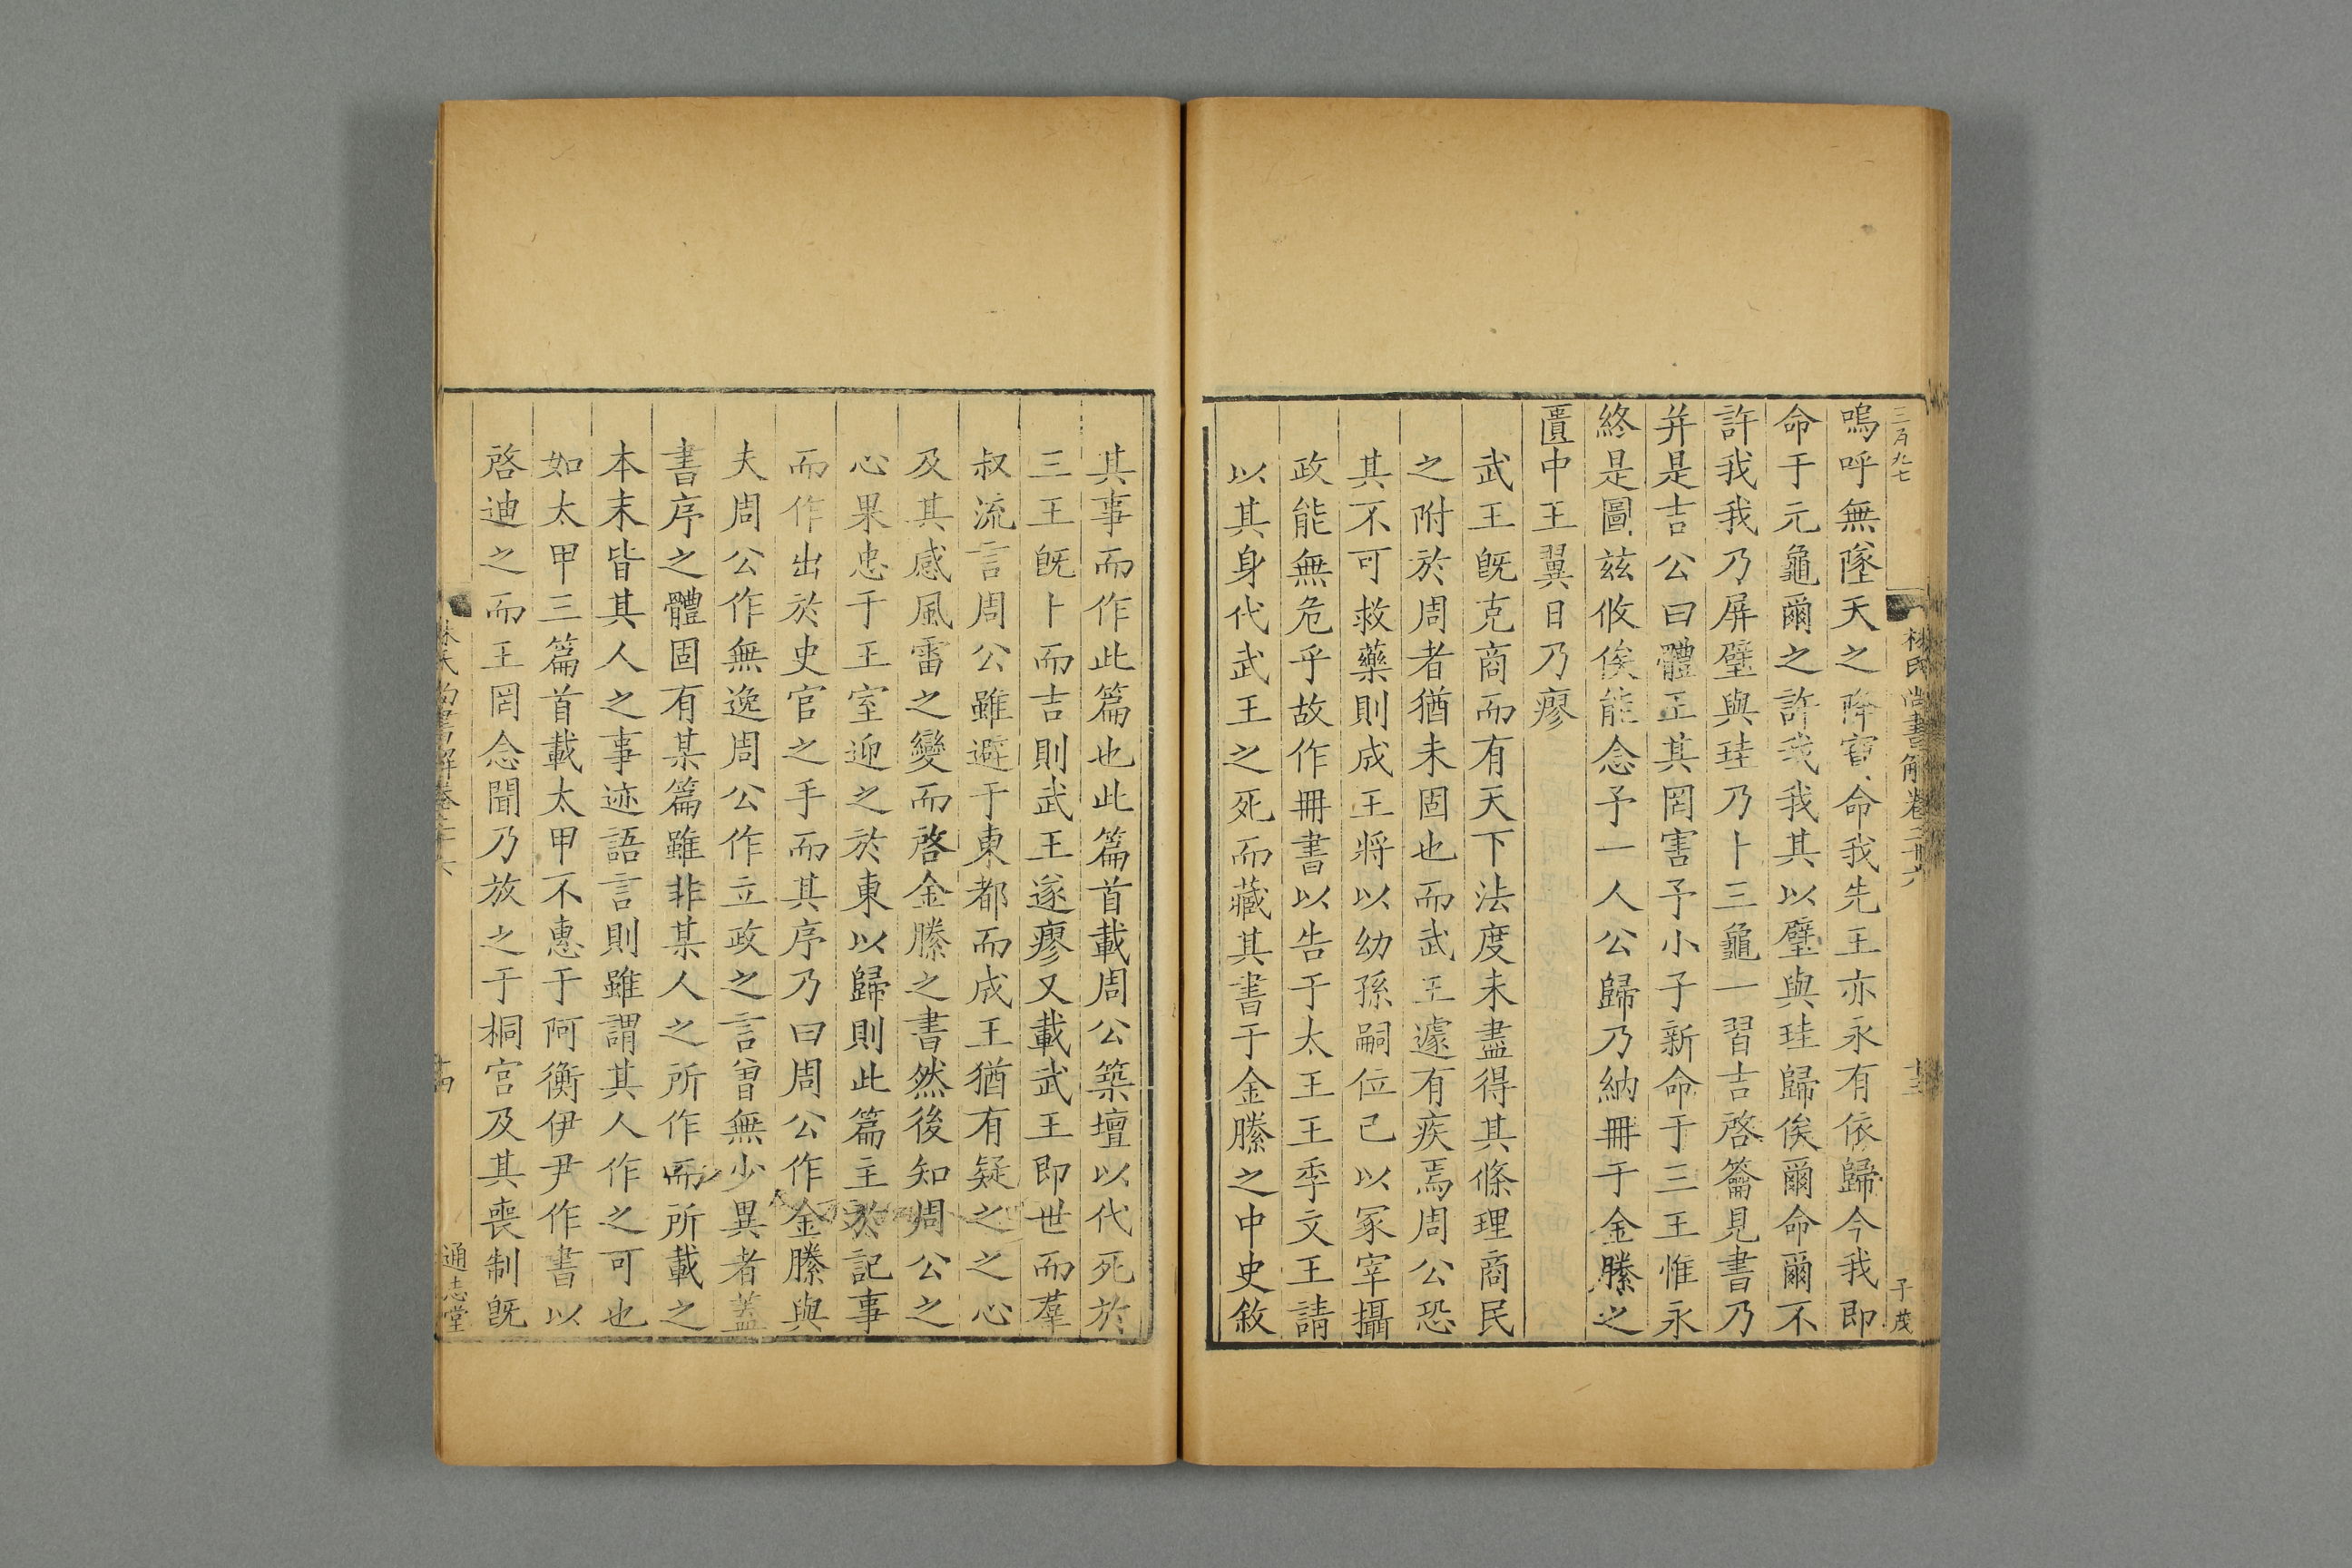 三百九七
林氏尚書解卷二十六
十三
子茂
嗚呼無墜天之降寶命我先王亦永有依歸今我即
命于元龜爾之許我我其以璧與珪歸俟爾命爾不
許我我乃屏璧與珪乃卜三龜一習吉啓籥見書乃
并是吉公曰體王其罔害予小子新命于三王惟永
終是圖茲攸俟能念予一人公歸乃納冊于金縢之
匱中王翼日乃瘳
武王旣克商而有天下法度未盡得其條理商民
之附於周者猶未固也而武王遽有疾焉周公恐
其不可救藥則成王將以幼孫嗣位己以冢宰攝
政能無危乎故作冊書以告于太王王季文王請
以其身代武王之死而藏其書于金縢之中史敘
其事而作此篇也此篇首載周公築壇以代死於
三王旣卜而吉則武王遂瘳又載武王即世而羣
叔流言周公雖避于東都而成王猶有疑之之心
及其感風雷之變而啓金縢之書然後知周公之
心果忠于王室迎之於東以歸則此篇主於記事
而作出於史官之手而其序乃曰周公作金縢與
夫周公作無逸周公作立政之言曾無少異者蓋
書序之體固有某篇雖非某人之所作而所載之
本末皆其人之事迹語言則雖謂其人作之可也
如太甲三篇首載太甲不惠于阿衡伊尹作書以
啓迪之而王罔念聞乃放之于桐宮及其喪制旣
林氏尚書解卷二十六
十四
通志堂